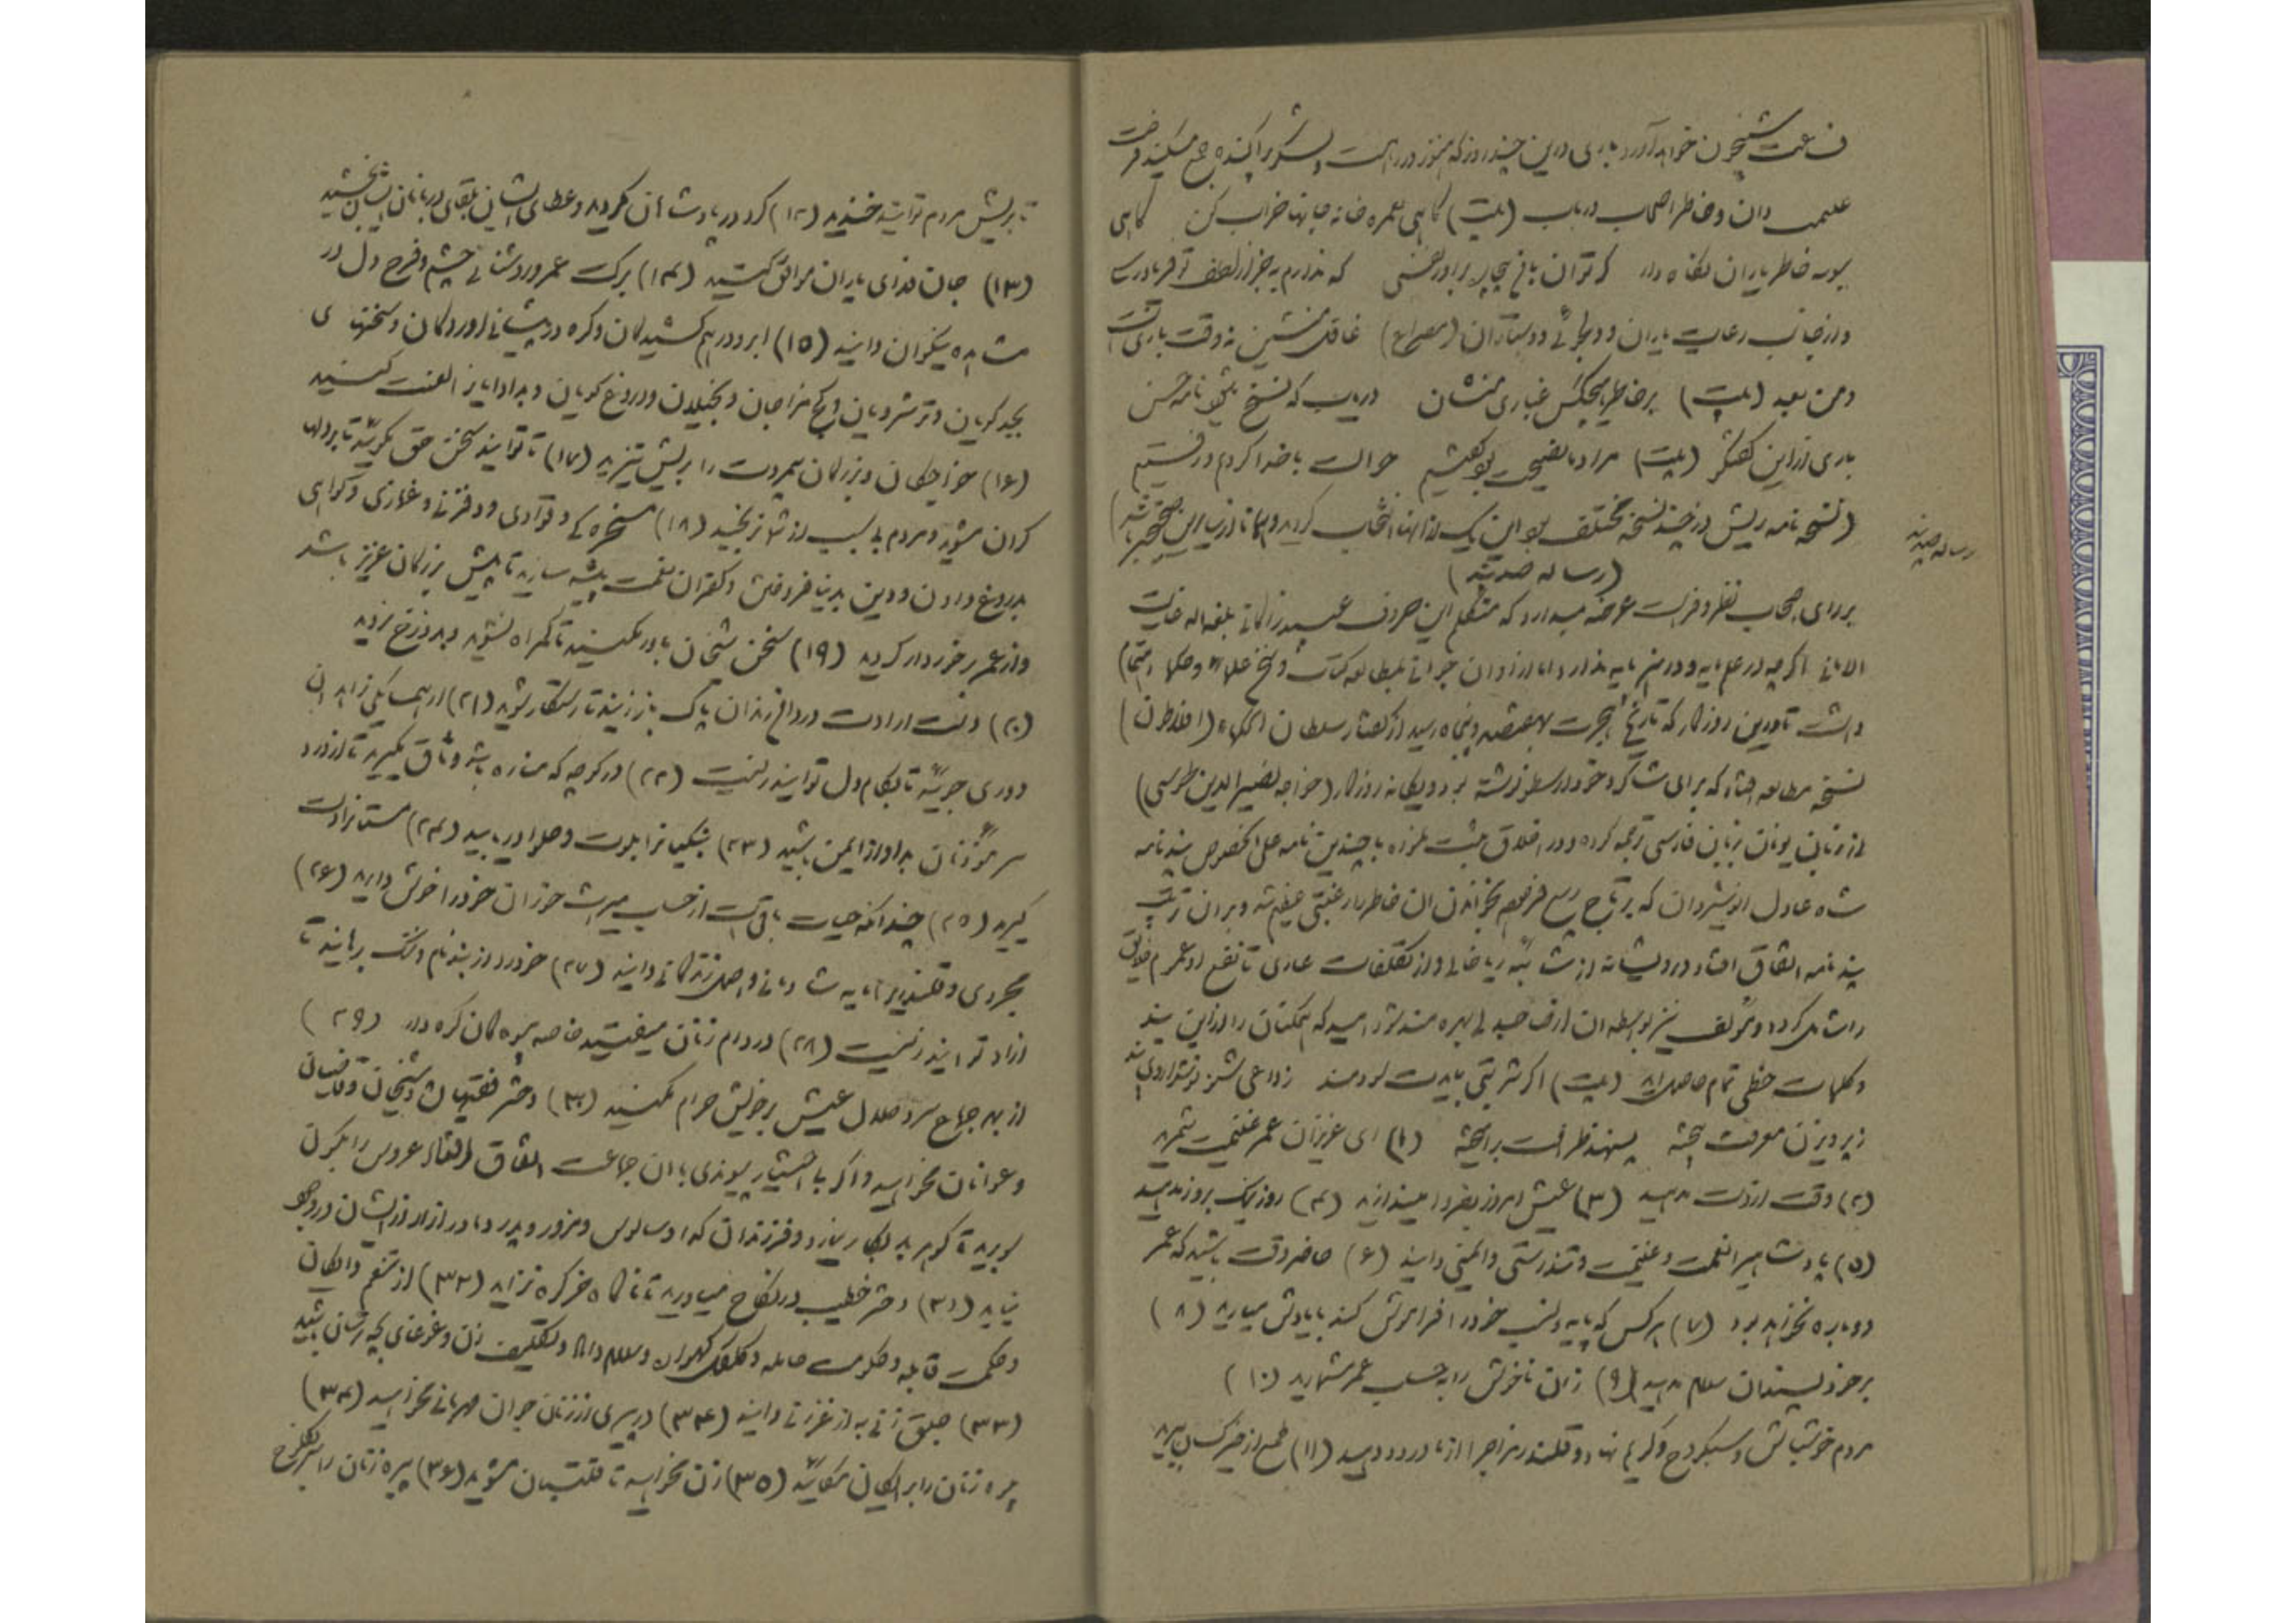 ساعت شبیخون خواهد آورد باری درین چند روز که هنوز در راهست و لشکر پراکنده جمع میکند فرصت
غنیمت دان و خاطر اصحاب دریاب (بیت) گاهی بغمزه خانه جانها خراب کن گاهی
ببوسه خاطر یاران نگاه دار گر توان باغ بیار برآور نفسی که ندارم بجز از لطف تو فریادرس
و از جانب رعایت یاران و دلجوئی دوستداران (مصراع) غافل منشین نه وقت بازی است
و من بعد (بیت) بر خاطر هیچکس غباری منشان دریاب که نسخ نامه حسن
باری از این گفتگو (بیت) مراد ما نصیحت بود گفتیم حوالت با خدا کردیم و رفتیم
(نسخه نامه ریش در چند نسخه مختلف بود این یک از آنها انتخاب کرده و همانا از سایرین صحیح‌تر باشد)
رساله صد پند
(رساله صد پند)
برای اصحاب نظر و فراست عرضه میدارد که متکلم این حروف عبید زاکانی بلغه الله غایت
الامانی اگرچه در علم پایه و در هنر مایه ندارد اما از اوان جوانی بمطالعه کتاب و نسخ علما و حکما اهتمام
داشت تا درین روزگار که تاریخ هجرت بهفتصد و پنجاه رسید از گفتار سلطان الحکماء (افلاطون)
نسخه مطالعه افتاد که برای شاگرد خود ارسطو نوشته بود و یگانه روزگار (خواجه نصیرالدین طوسی)
از زبان یونان بزبان فارسی ترجمه کرده و در اخلاق ثبت نموده با چندین نامه علی الخصوص پند نامه
شاه عادل انوشیروان که بر تاج ربع فرموده بخواندن آن خاطر را رغبتی عظیم شد و بر آن ترتیب
پند نامه اتفاق افتاد درویشانه از شائبه ریا خالی و از تکلفات عاری تا نفع او عموم خلایق
را شامل گردد و مؤلف نیز بواسطه آن از صاحبدلی بهره‌مند شود امید که همگنان را از این پند
و کلمات حظی تمام حاصل آید (بیت) اگر شربتی بایدت سودمند ز داعی شنو نوشداروی پند
ز پرویزن معرفت بیخته بشهد ظرافت برآمیخته (۱) ای عزیزان عمر غنیمت شمرید
(۲) وقت از دست مدهید (۳) عیش امروز بفردا میندازید (۴) روز نیک بروز بد مدهید
(۵) پادشاهی را نعمت و غنیمت و تندرستی و ایمنی دانید (۶) حاضر وقت باشید که عمر
دوباره نخواهد بود (۷) هر کس که پایه و نسب خود را فراموش کند بیادش میارید (۸)
بر خود پسندان سلام مدهید (۹) زمان ناخوشی را به حساب عمر مشمارید (۱۰)
مردم خوشباش و سبکروح و کریم نهاد و قلندر مزاج را از ما درود دهید (۱۱) طمع از خیر کسان ببرید
تا بریش مردم توانید خندید (۱۲) گرد در پادشاهان مگردید و عطای ایشان بلقای دربانان ایشان بخشید
(۱۳) جان فدای یاران موافق کنید (۱۴) برکت عمر و روشنائی چشم و فرح دل در
مشاهده نیکوان دانید (۱۵) ابرو درهم کشیدگان و گره در پیشانی آوردگان و سخنهای
بجد گویان و ترشرویان و کج مزاجان و بخیلان و دروغ گویان و بد ادایان را لعنت کنید
(۱۶) خواجگان و بزرگان بیمروت را بریش تیزید (۱۷) تا توانید سخن حق مگوئید تا بر دلها
گران مشوید و مردم بی سبب از شما نرنجند (۱۸) مسخرگی و قوادی و دفزنی و غمازی و گواهی
بدروغ دادن و دین بدنیا فروختن و کفران نعمت پیشه سازید تا پیش بزرگان عزیز باشید
و از عمر برخوردار گردید (۱۹) سخن شیخان باور مکنید تا گمراه نشوید و بدوزخ نروید
(۲۰) دست ارادت در دامن رندان پاکباز زنید تا رستگار شوید (۲۱) از همسایگی زاهدان
دوری جوئید تا بکام دل توانید زیست (۲۲) در کوچه که مناره باشد وثاق مگیرید تا از درد
سر مؤذنان بد آواز ایمن باشید (۲۳) بنگیان را بلوت و حلوا دریابید (۲۴) مستانرا دست
گیرید (۲۵) چندانکه حیات باقی است از حساب میراث خواران خود را خوش دارید (۲۶)
مجردی و قلندری را مایه شادمانی و اصل زندگانی دانید (۲۷) خود را از بند نام و ننگ برهانید تا
آزاد توانید زیست (۲۸) در دام زنان میفتید خاصه بیوگان کره دار (۲۹)
از بهر جماع سرد حلال عیش بر خویش حرام مکنید (۳۰) دختر فقیهان و شیخان و قاضیان
و عوانان مخواهید و اگر بی اختیار پیوندی با آن جماعت اتفاق افتاد عروس را بکون
سو برید تا گوهر بد بکار نیاورد و فرزندان گدا و سالوس و مزور و پدر و مادر آزار از ایشان در وجود
نیاید (۳۱) دختر خطیب در نکاح میاورید تا ناگاه خر کره نزاید (۳۲) از تنعم دایگان
و حکمت قابله و حکومت حامله و کلکل گهواره و سلام داماد و تکلیف زن و غوغای بچه ترسان باشید
(۳۳) جلق زنی به از غر زنی دانید (۳۴) در پیری از زنان جوان مهربانی مخواهید (۳۴)
پیره زنان را برایگان مگائید (۳۵) زن مخواهید تا قلتبان مشوید (۳۶) پیره زنان را سر بکلوخ